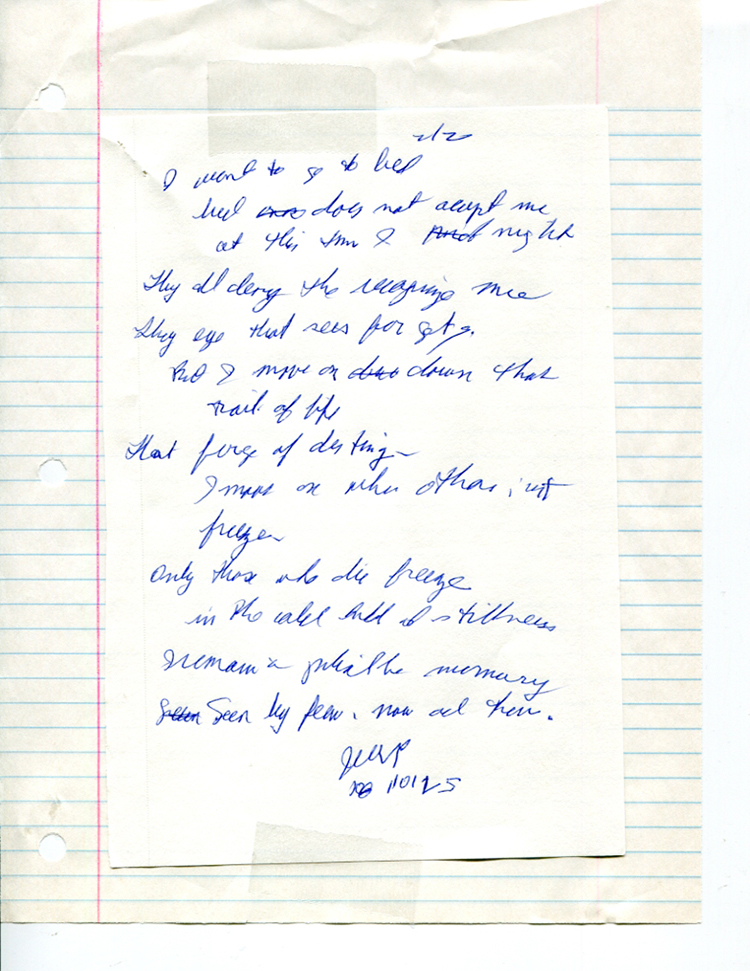 I want to go to bed
bed does not accept me
at this time I night
They all deny the recognize me
they eye that sees forgets.
But I move on down that
trail of life
that forge of destiny
I move on when others just
freeze
Only those who die freeze
in the cold hall of stillness
I remain a memory
Seen by few. now and then.